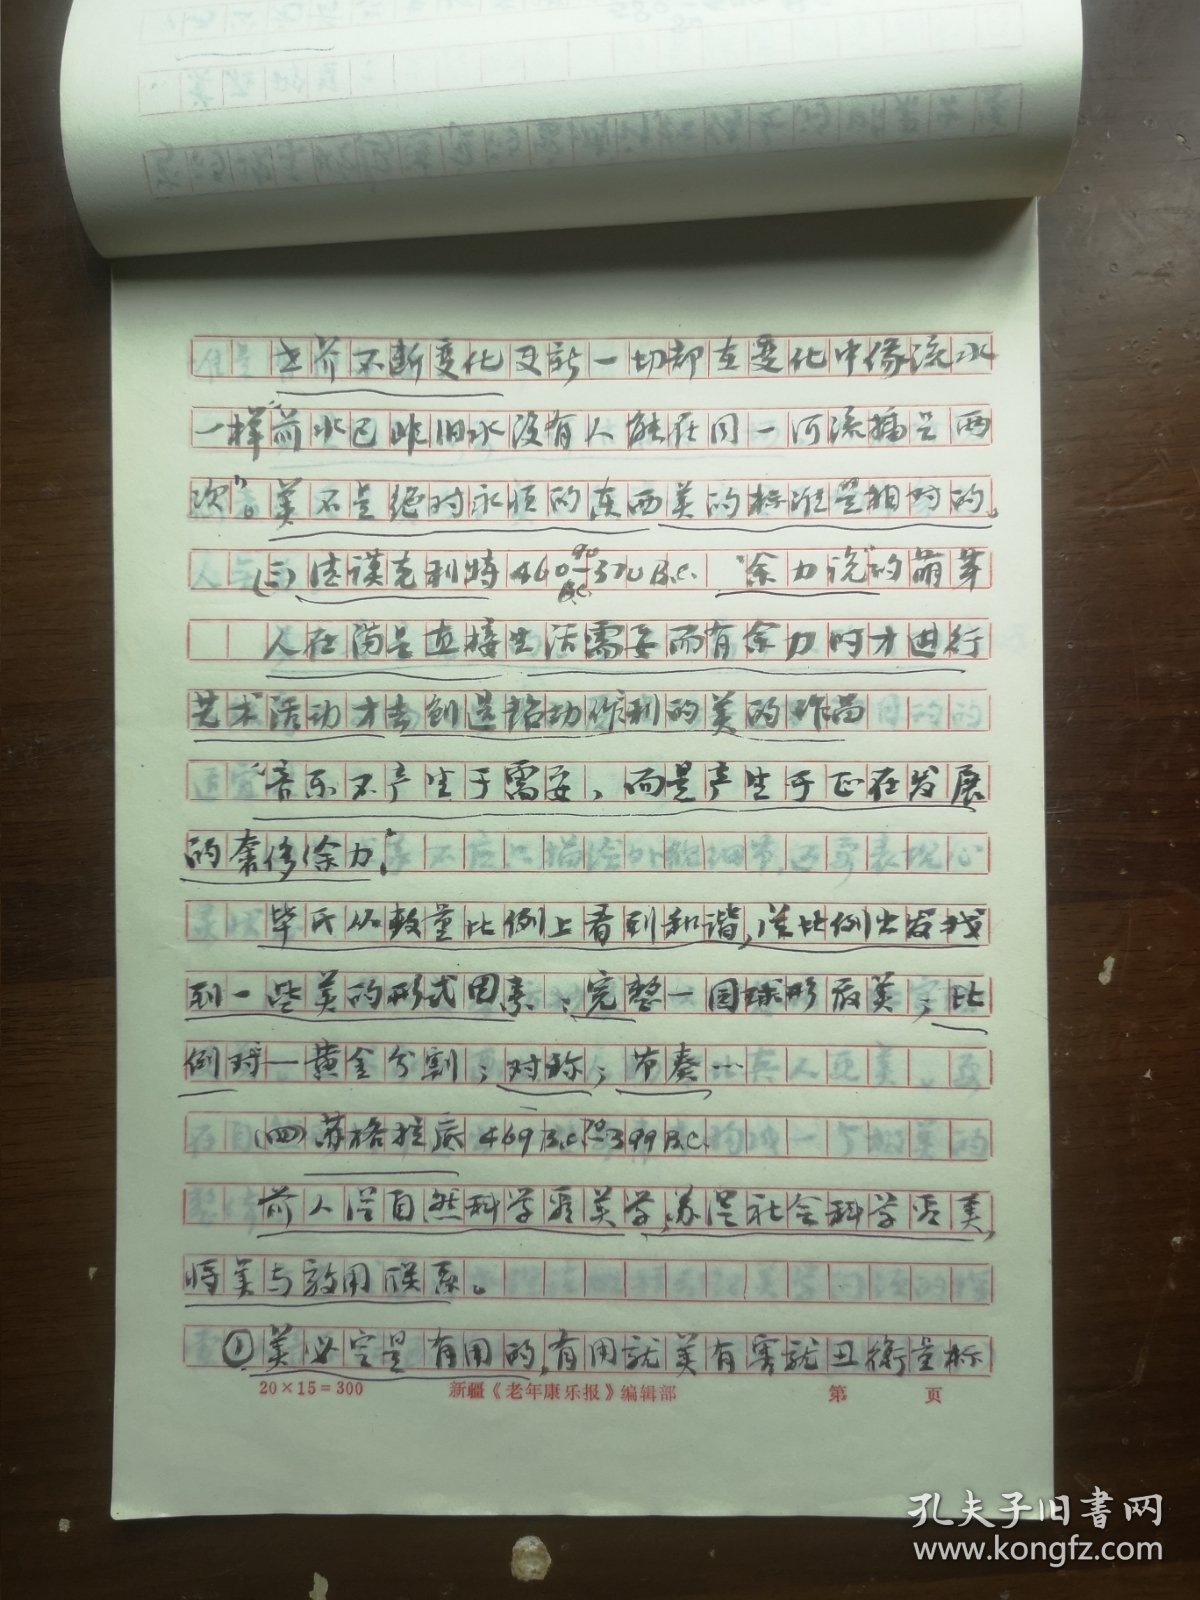 世界不断变化更新一切都在变化中像流水
一样"前水已非旧水没有人能在同一河流插足两
次"。美不是绝对永恒的东西美的标准是相对的。
(三)德谟克利特460-370B.C. "余力说"的萌芽
人在满足直接生活需要而有余力时才进行
艺术活动才去创造超功作利的美的作品
"音乐不产生于需要,而是产生于正在发展
的奢侈余力"
毕氏从数量比例上看到和谐,从比例出发找
到一些美的形式因素:完整一圆球形最美;比
例对一黄金分割;对称;节奏…
(四)苏格拉底469B.C.-399B.C.
前人从自然科学看美学,苏从社会科学看美,
将美与效用联系。
①美必定是有用的,有用就美有害就丑衡量标
20×15=300 新疆《老年康乐报》编辑部 第 页
孔夫子旧书网
www.kongfz.com